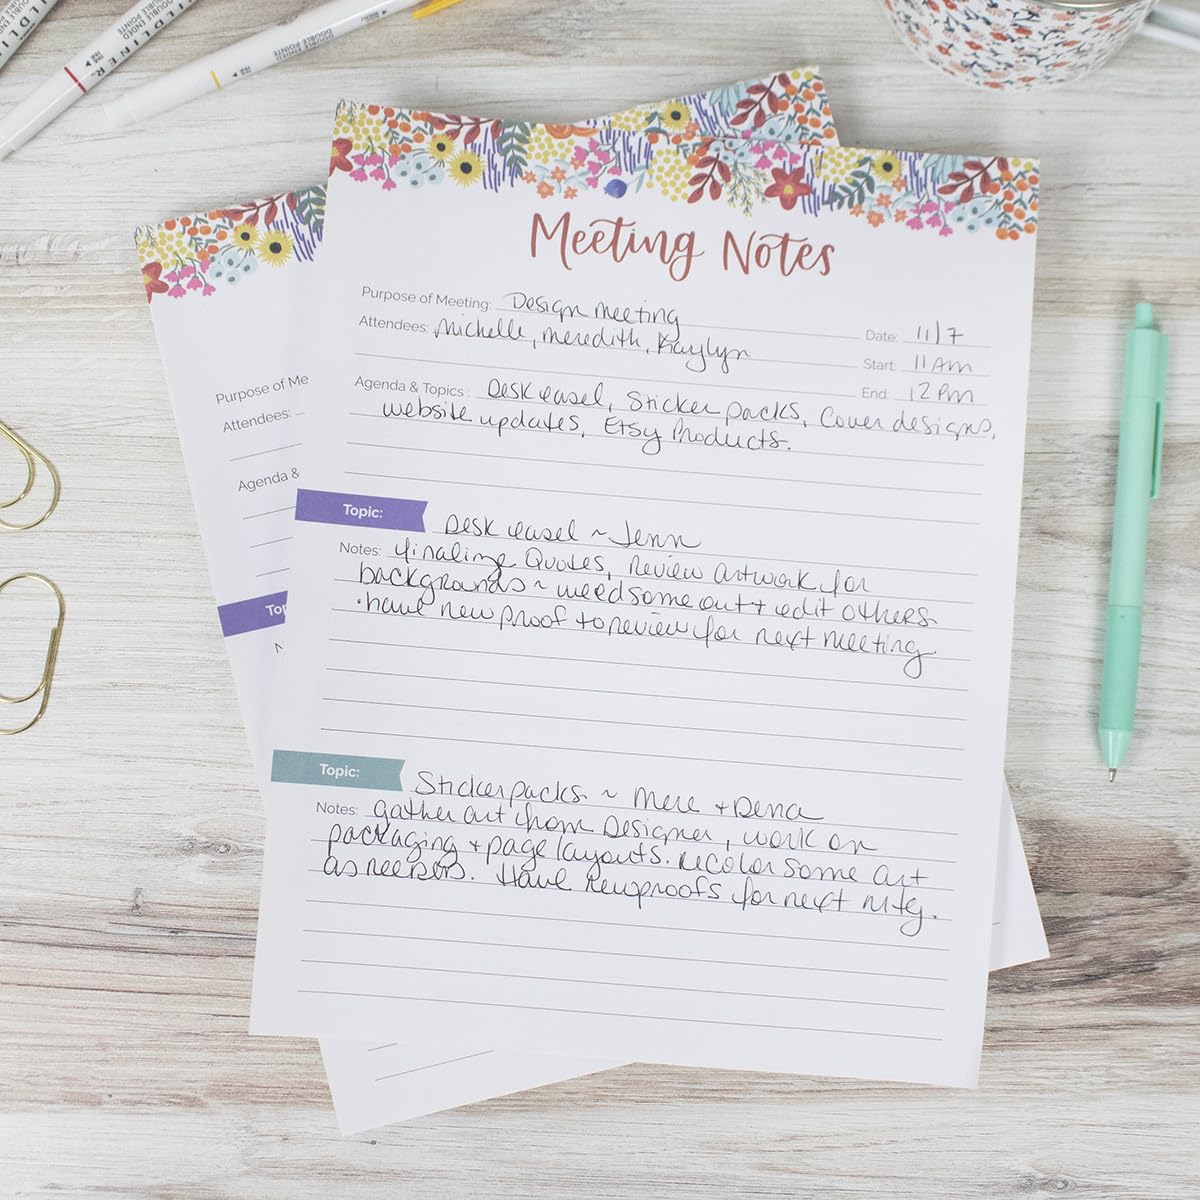 WILDLINER
DOUBLE ENDED
DOUBLE POINTE
DOUBLE ENDED
DOUBLE POINTE
Meeting Notes
Purpose of Meeting: Design meeting
Date: 11/7
Attendees: Michelle, Meredith, Kaylyn
Start: 11 Am
End: 12 Pm
Agenda & Topics: Desk easel, Sticker packs, Cover designs,
website updates, Etsy Products.
Topic: Desk easel ~ Jenn
Notes: finalize Quotes, review artwork for
backgrounds ~ weed some out + edit others.
• have new proof to review for next meeting.
Topic: Sticker packs ~ Mere + Dena
Notes: gather art from Designer, work on
packaging + page layouts. recolor some art
as needed. Have new proofs for next mtg.
Purpose of Me
Attendees:
Agenda &
Top
N